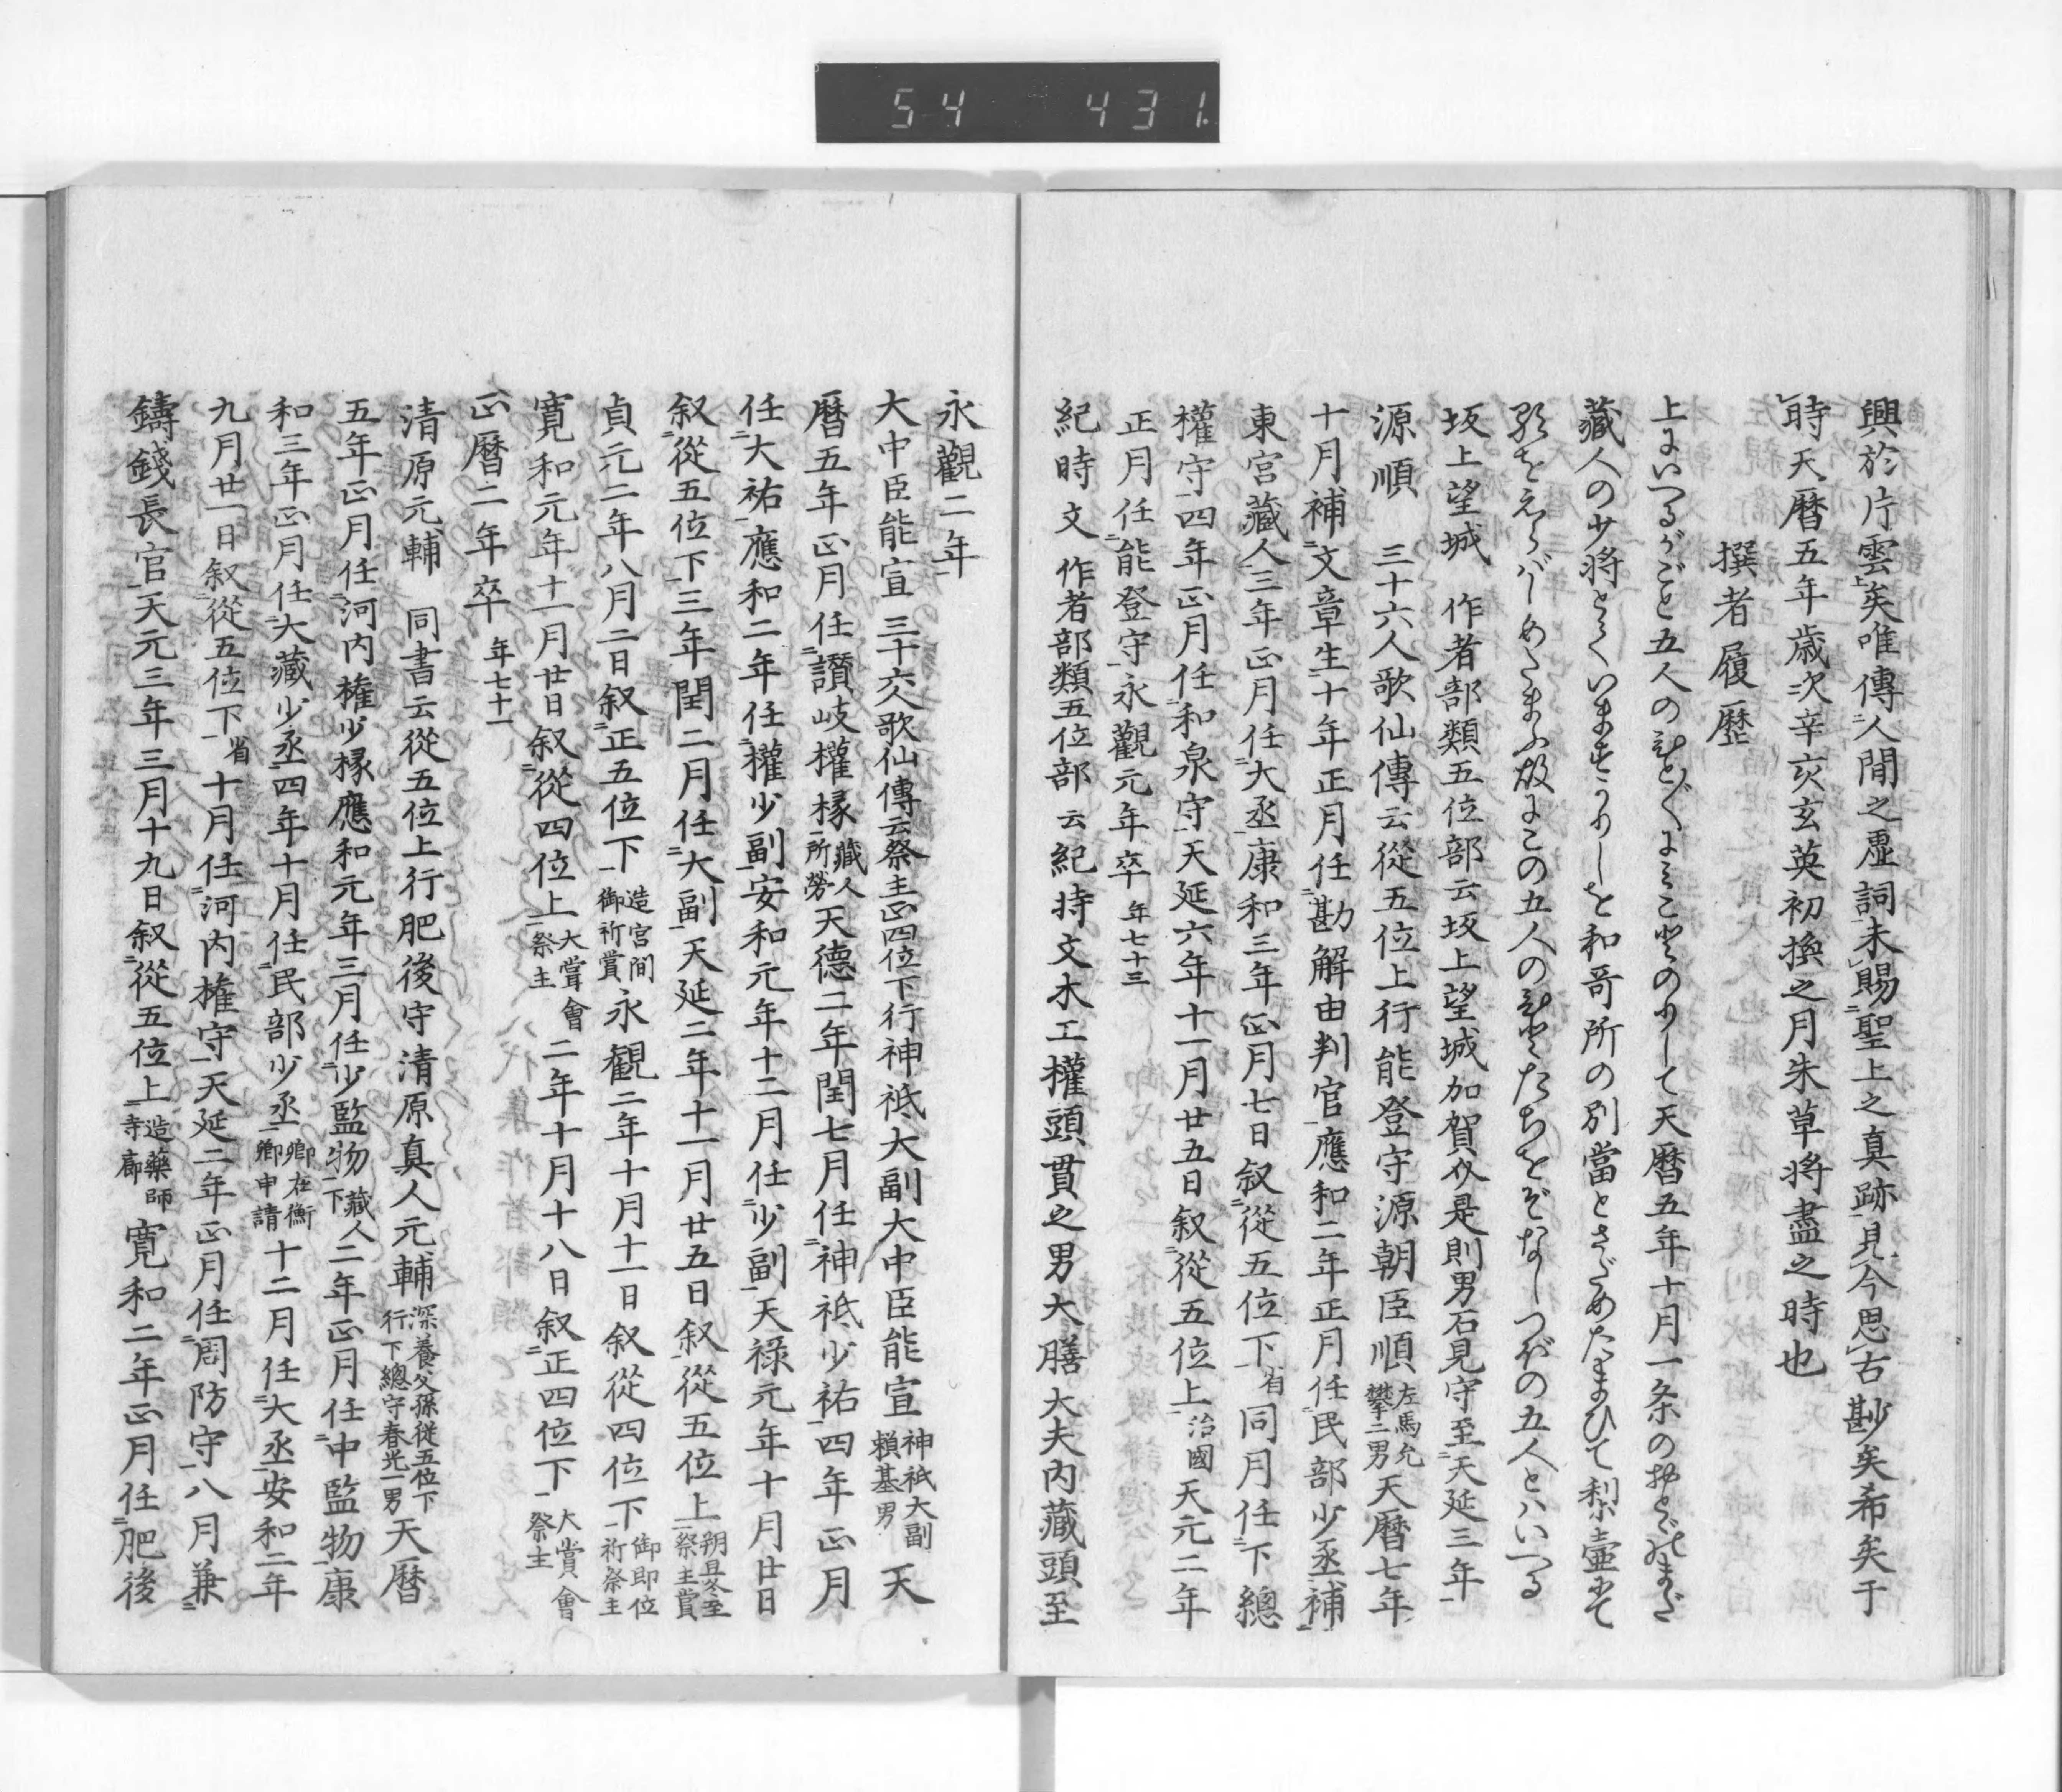 54 431.
興於片雲矣唯傳人間之虚詞未賜聖上之真跡見今思古尠矣希矣于
時天暦五年歳次辛亥玄英初換之月朱草将盡之時也
撰者履歴
上にいへるがごと五人のひとびとにみことのりして天暦五年十月一条のおとどのまだ
蔵人の少将とていますかりしを和哥所の別當とさだめたまひて梨壷にて
歌をえらばしめたまふ故にこの五人のひとたちをぞなしつぼの五人とハいへる
坂上望城 作者部類五位部云坂上望城加賀介是則男石見守至天延三年
源順 三十六人歌仙傳云從五位上行能登守源朝臣順左馬允攀二男天暦七年
十月補文章生十年正月任勘解由判官應和二年正月任民部少丞補
東宮藏人三年正月任大丞康和三年正月七日叙從五位下省同月任下總
權守四年正月任和泉守天延六年十一月廿五日叙從五位上治國天元二年
正月任能登守永觀元年卒年七十三
紀時文 作者部類五位部云紀時文木工權頭貫之男大膳大夫内藏頭至
永觀二年
大中臣能宣 三十六人歌仙傳云祭主正四位下行神祇大副大中臣能宣神祇大副頼基男天
暦五年正月任讃岐權掾藏人所勞天德二年閏七月任神祇少祐四年正月
任大祐應和二年任權少副安和元年十二月任少副天禄元年十月廿日
叙從五位下三年閏二月任大副天延二年十一月廿五日叙從五位上朔旦冬至祭主賞
貞元二年八月二日叙正五位下造宮間御祈賞永観二年十月十一日叙從四位下御即位祈祭主
寛和元年十一月廿日叙從四位上大嘗會祭主二年十月十八日叙正四位下大嘗會祭主
正暦二年卒年七十一
清原元輔 同書云從五位上行肥後守清原真人元輔深養父孫従五位下行下總守春光一男天暦
五年正月任河内権少掾應和元年三月任少監物藏人下二年正月任中監物康
和三年正月任大藏少丞四年十月任民部少丞卿在衡卿申請十二月任大丞安和二年
九月廿一日叙從五位下省十月任河内権守天延二年正月任周防守八月兼
鑄錢長官天元三年三月十九日叙從五位上造藥師寺廊寛和二年正月任肥後